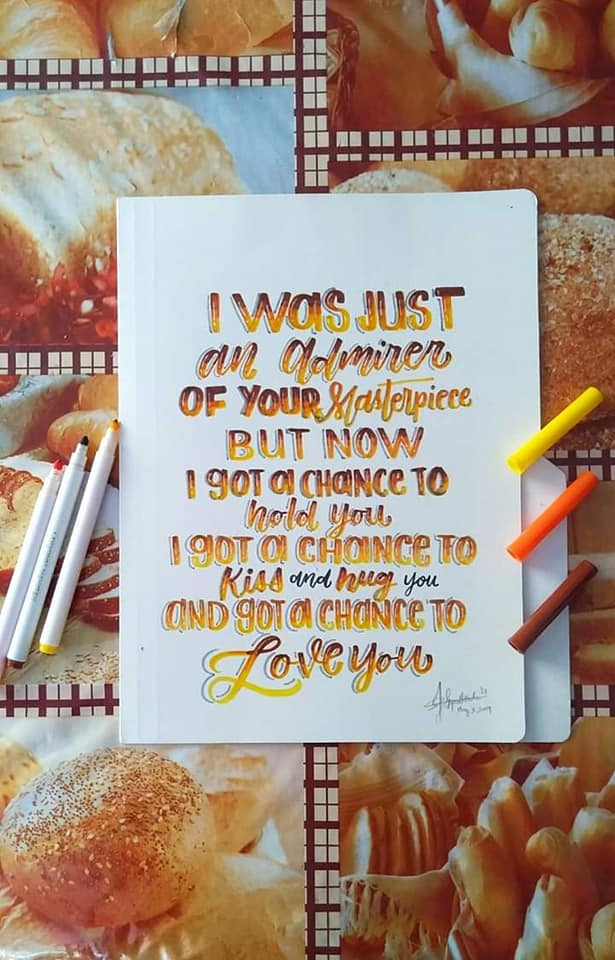 I WAS JUST
an Admirer
OF YOUR Masterpiece
BUT NOW
I GOT A CHANCE TO
hold you
I GOT A CHANCE TO
Kiss and hug you
AND GOT A CHANCE TO
Love you
May 5, 2019